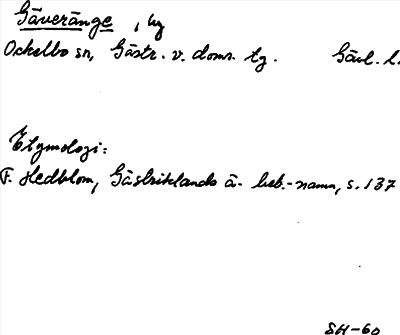 Gäveränge, by
Ockelbo sn, Gästr. v. doms. tg. Gävl. l.
Etymologi:
F. Hedblom, Gästriklands ä. beb.-namn, s. 137
SH-60